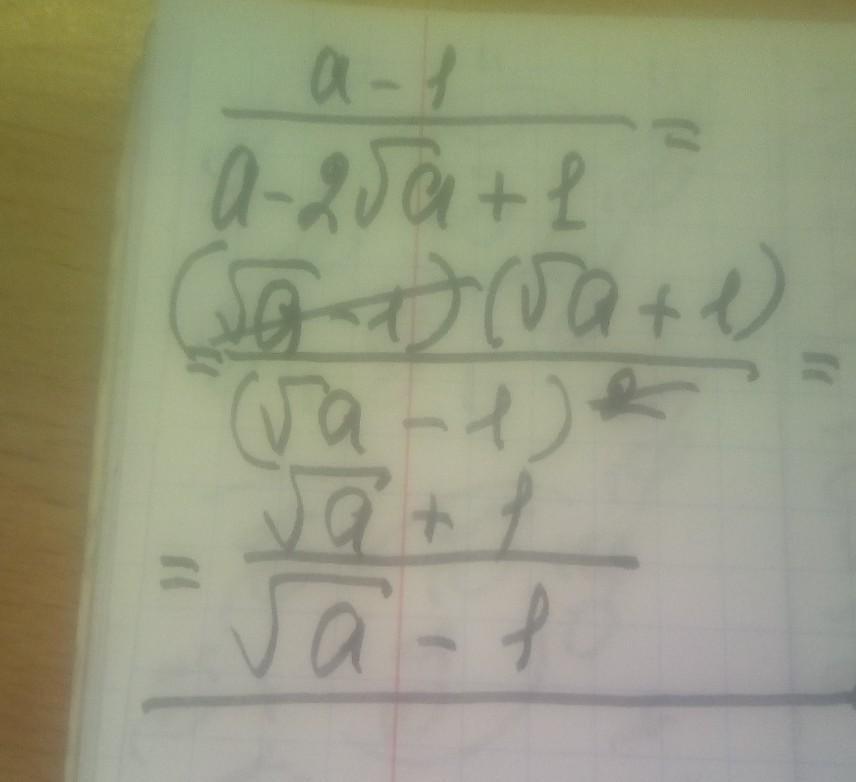 a - 1
/ a - 2√a + 1 =
= (√a - 1)(√a + 1)
/ (√a - 1)² =
= √a + 1
/ √a - 1